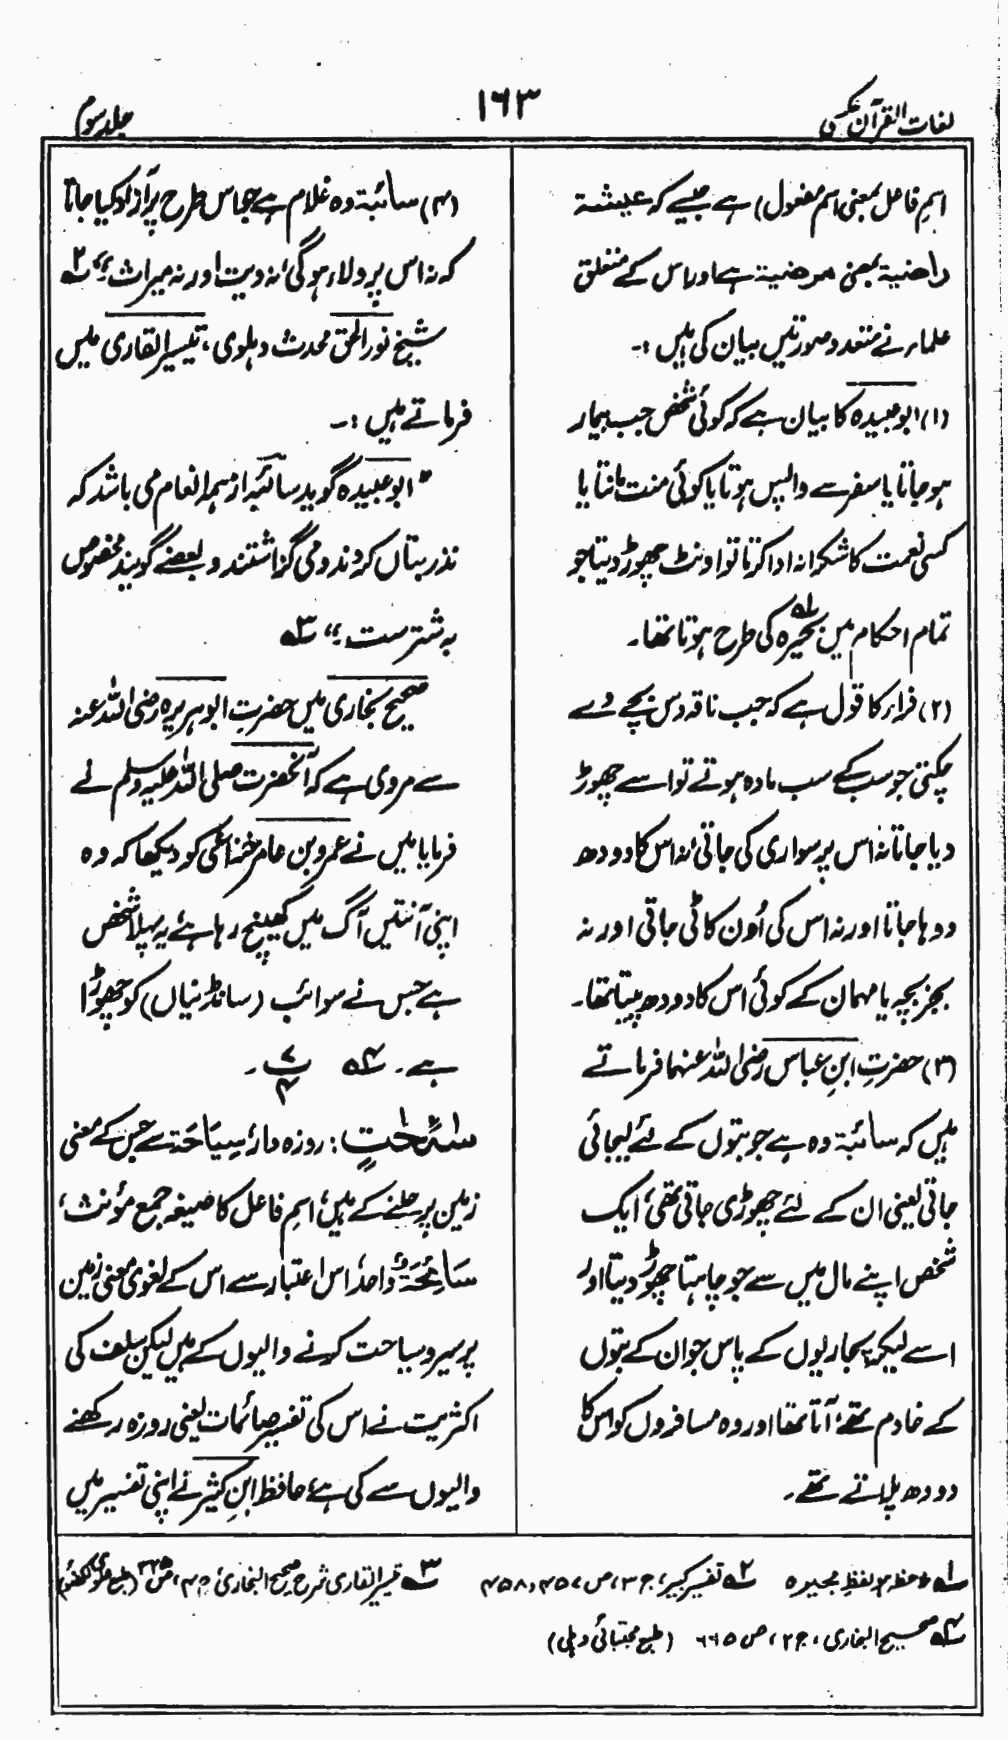 لغات القرآن عکسی
۱۶۳
جلد سوم
اسمِ فاعل بمعنی اسم مفعول) ہے جیسے کہ عیشۃ
راضیۃ بمعنی مرضیۃ ہے اور اس کے متعلق
علماء نے متعدد صورتیں بیان کی ہیں :۔
(۱) ابو عبیدہ کا بیان ہے کہ کوئی شخص جب بیمار
ہو جاتا یا سفر سے واپس ہوتا یا کوئی منت مانتا یا
کسی نعمت کا شکرانہ ادا کرتا تو اونٹ چھوڑ دیتا جو
تمام احکام میں بحیرہ لہ کی طرح ہوتا تھا۔
(۲) فراء کا قول ہے کہ جب ناقہ دس بچے دے
چکتی جو سب کے سب مادہ ہوتے تو اسے چھوڑ
دیا جاتا نہ اس پر سواری کی جاتی، نہ اس کا دودھ
دوہا جاتا اور نہ اس کی اُون کاٹی جاتی اور نہ
بجز بچہ یا مہمان کے کوئی اس کا دودھ پیتا تھا۔
(۳) حضرتِ ابنِ عباس رضی اللہ عنہما فرماتے
ہیں کہ سائبۃ وہ ہے جو بتوں کے لئے لیجائی
جاتی یعنی ان کے لئے چھوڑی جاتی تھی، ایک
شخص اپنے مال میں سے جو چاہتا چھوڑ دیتا اور
اسے لیکر پجاریوں کے پاس جو ان کے بتوں
کے خادم تھے، آتا تھا اور وہ مسافروں کو اس کا
دودھ پلاتے تھے۔
(۴) سائبۃ وہ غلام ہے جو اس طرح پر آزاد کیا جاتا
کہ نہ اس پر ولاء ہوگی، نہ دیت اور نہ میراث،، ۲ہ
شیخ نور الحق محدث دہلوی، تیسیر القاری میں
فرماتے ہیں :۔
"ابو عبیدہ گوید سائبہ از ہمہ انعام می باشد کہ
نذر بتاں کردند و می گزاشتند و بعضے گویند مخصوص
بہ شترست،، ۳ہ
صحیح بخاری میں حضرتِ ابوہریرہ رضی اللہ عنہ
سے مروی ہے کہ آنحضرت صلی اللہ علیہ وسلم نے
فرمایا میں نے عمرو بن عامر خزاعی کو دیکھا کہ وہ
اپنی آنتیں آگ میں کھینچ رہا ہے، یہ پہلا شخص
ہے جس نے سوائب (سانڈنیاں) کو چھوڑا
ہے۔ ۴ہ پ ۷ ۴۔
سٰٓئِحٰتٍ: روزہ دار، سِیَاحَۃ سے جس کے معنی
زمین پر چلنے کے ہیں، اسمِ فاعل کا صیغہ جمع مؤنث،
سَائِحَۃٌ واحد، اس اعتبار سے اس کے لغوی معنی زمین
پر سیر و سیاحت کرنے والیوں کے ہیں لیکن سلف کی
اکثریت نے اس کی تفسیر صائمات یعنی روزہ رکھنے
والیوں سے کی ہے، حافظ ابنِ کثیر نے اپنی تفسیر میں
۱ہ ملاحظہ ہو لفظ بحیرہ ۲ہ تفسیر کبیر، ج ۳، ص ۴۵۷، ۴۵۸ ۳ہ تیسیر القاری شرح صحیح البخاری،
۴ہ صحیح البخاری، ج ۲، ص ۶۶۵ (طبع مجتبائی دہلی)